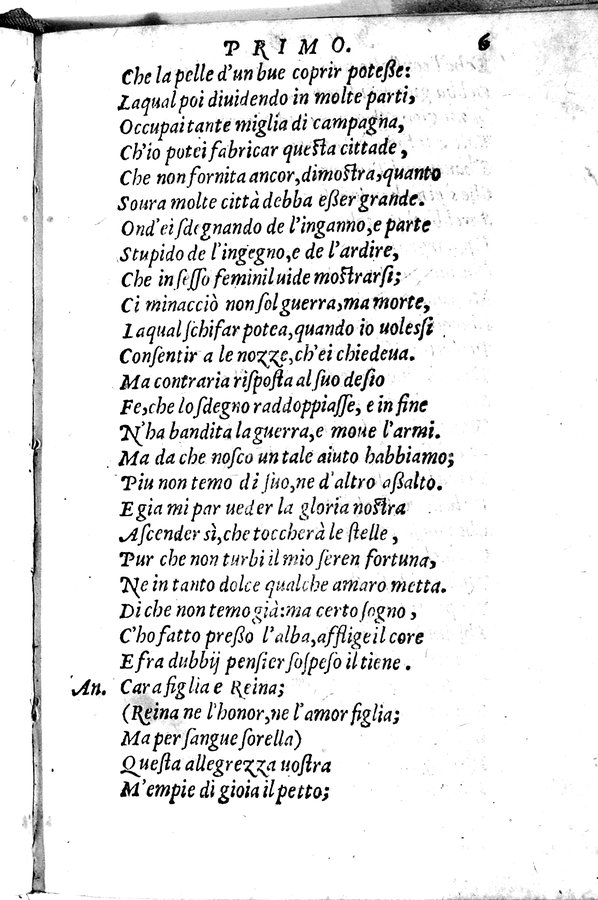 PRIMO. 6
Che la pelle d'un bue coprir poteſſe:
Laqual poi diuidendo in molte parti,
Occupai tante miglia di campagna,
Ch'io potei fabricar queſta cittade,
Che non fornita ancor, dimoſtra, quanto
Soura molte città debba eſſer grande.
Ond'ei ſdegnando de l'inganno, e parte
Stupido de l'ingegno, e de l'ardire,
Che in ſeſſo feminil uide moſtrarſi;
Ci minacciò non ſol guerra, ma morte,
Laqual ſchifar potea, quando io uoleſſi
Conſentir a le nozze, ch'ei chiedeua.
Ma contraria riſpoſta al ſuo deſio
Fe, che lo ſdegno raddoppiaſſe, e in fine
N'ha bandita la guerra, e moue l'armi.
Ma da che noſco un tale aiuto habbiamo;
Piu non temo di ſuo, ne d'altro aſſalto.
E gia mi par ueder la gloria noſtra
Aſcender sì, che toccherà le ſtelle,
Pur che non turbi il mio ſeren fortuna,
Ne in tanto dolce qualche amaro metta.
Di che non temo già: ma certo ſogno,
C'ho fatto preſſo l'alba, afflige il core
E fra dubbij penſier ſoſpeſo il tiene.
An. Cara figlia e Reina;
(Reina ne l'honor, ne l'amor figlia;
Ma per ſangue ſorella)
Queſta allegrezza uoſtra
M'empie di gioia il petto;